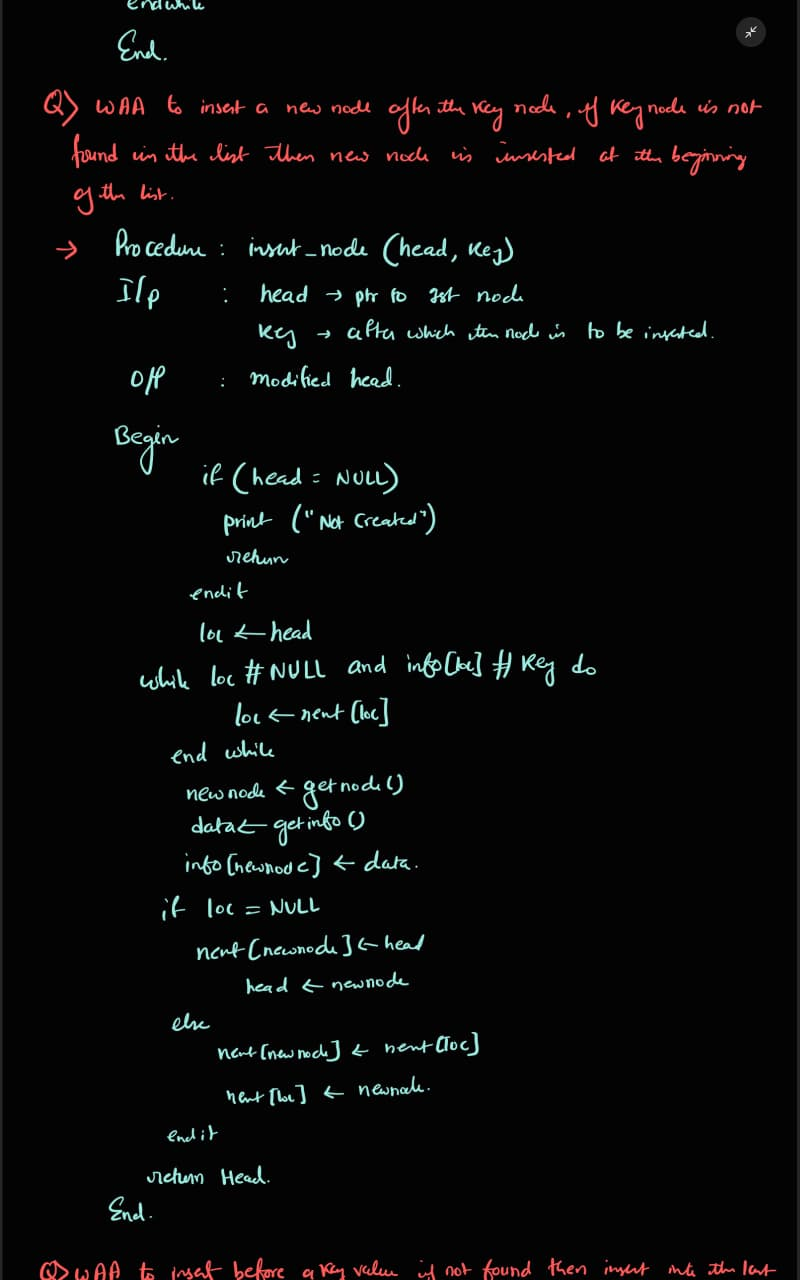 endwhile
End.
Q> WAA to insert a new node after the key node, if key node is not
found in the list then new node is inserted at the beginning
of the list.
→ Procedure : insert_node (head, key)
I/p : head → ptr to 1st node
key → after which the node is to be inserted.
O/P : modified head.
Begin
if (head = NULL)
print ("Not Created")
return
endif
loc ← head
while loc # NULL and info[loc] # key do
loc ← next [loc]
end while
newnode ← getnode()
data ← getinfo()
info [newnode] ← data.
if loc = NULL
next [newnode] ← head
head ← newnode
else
next [newnode] ← next [loc]
next [loc] ← newnode.
endif
return Head.
End.
Q> WAA to insert before a key value if not found then insert into the last